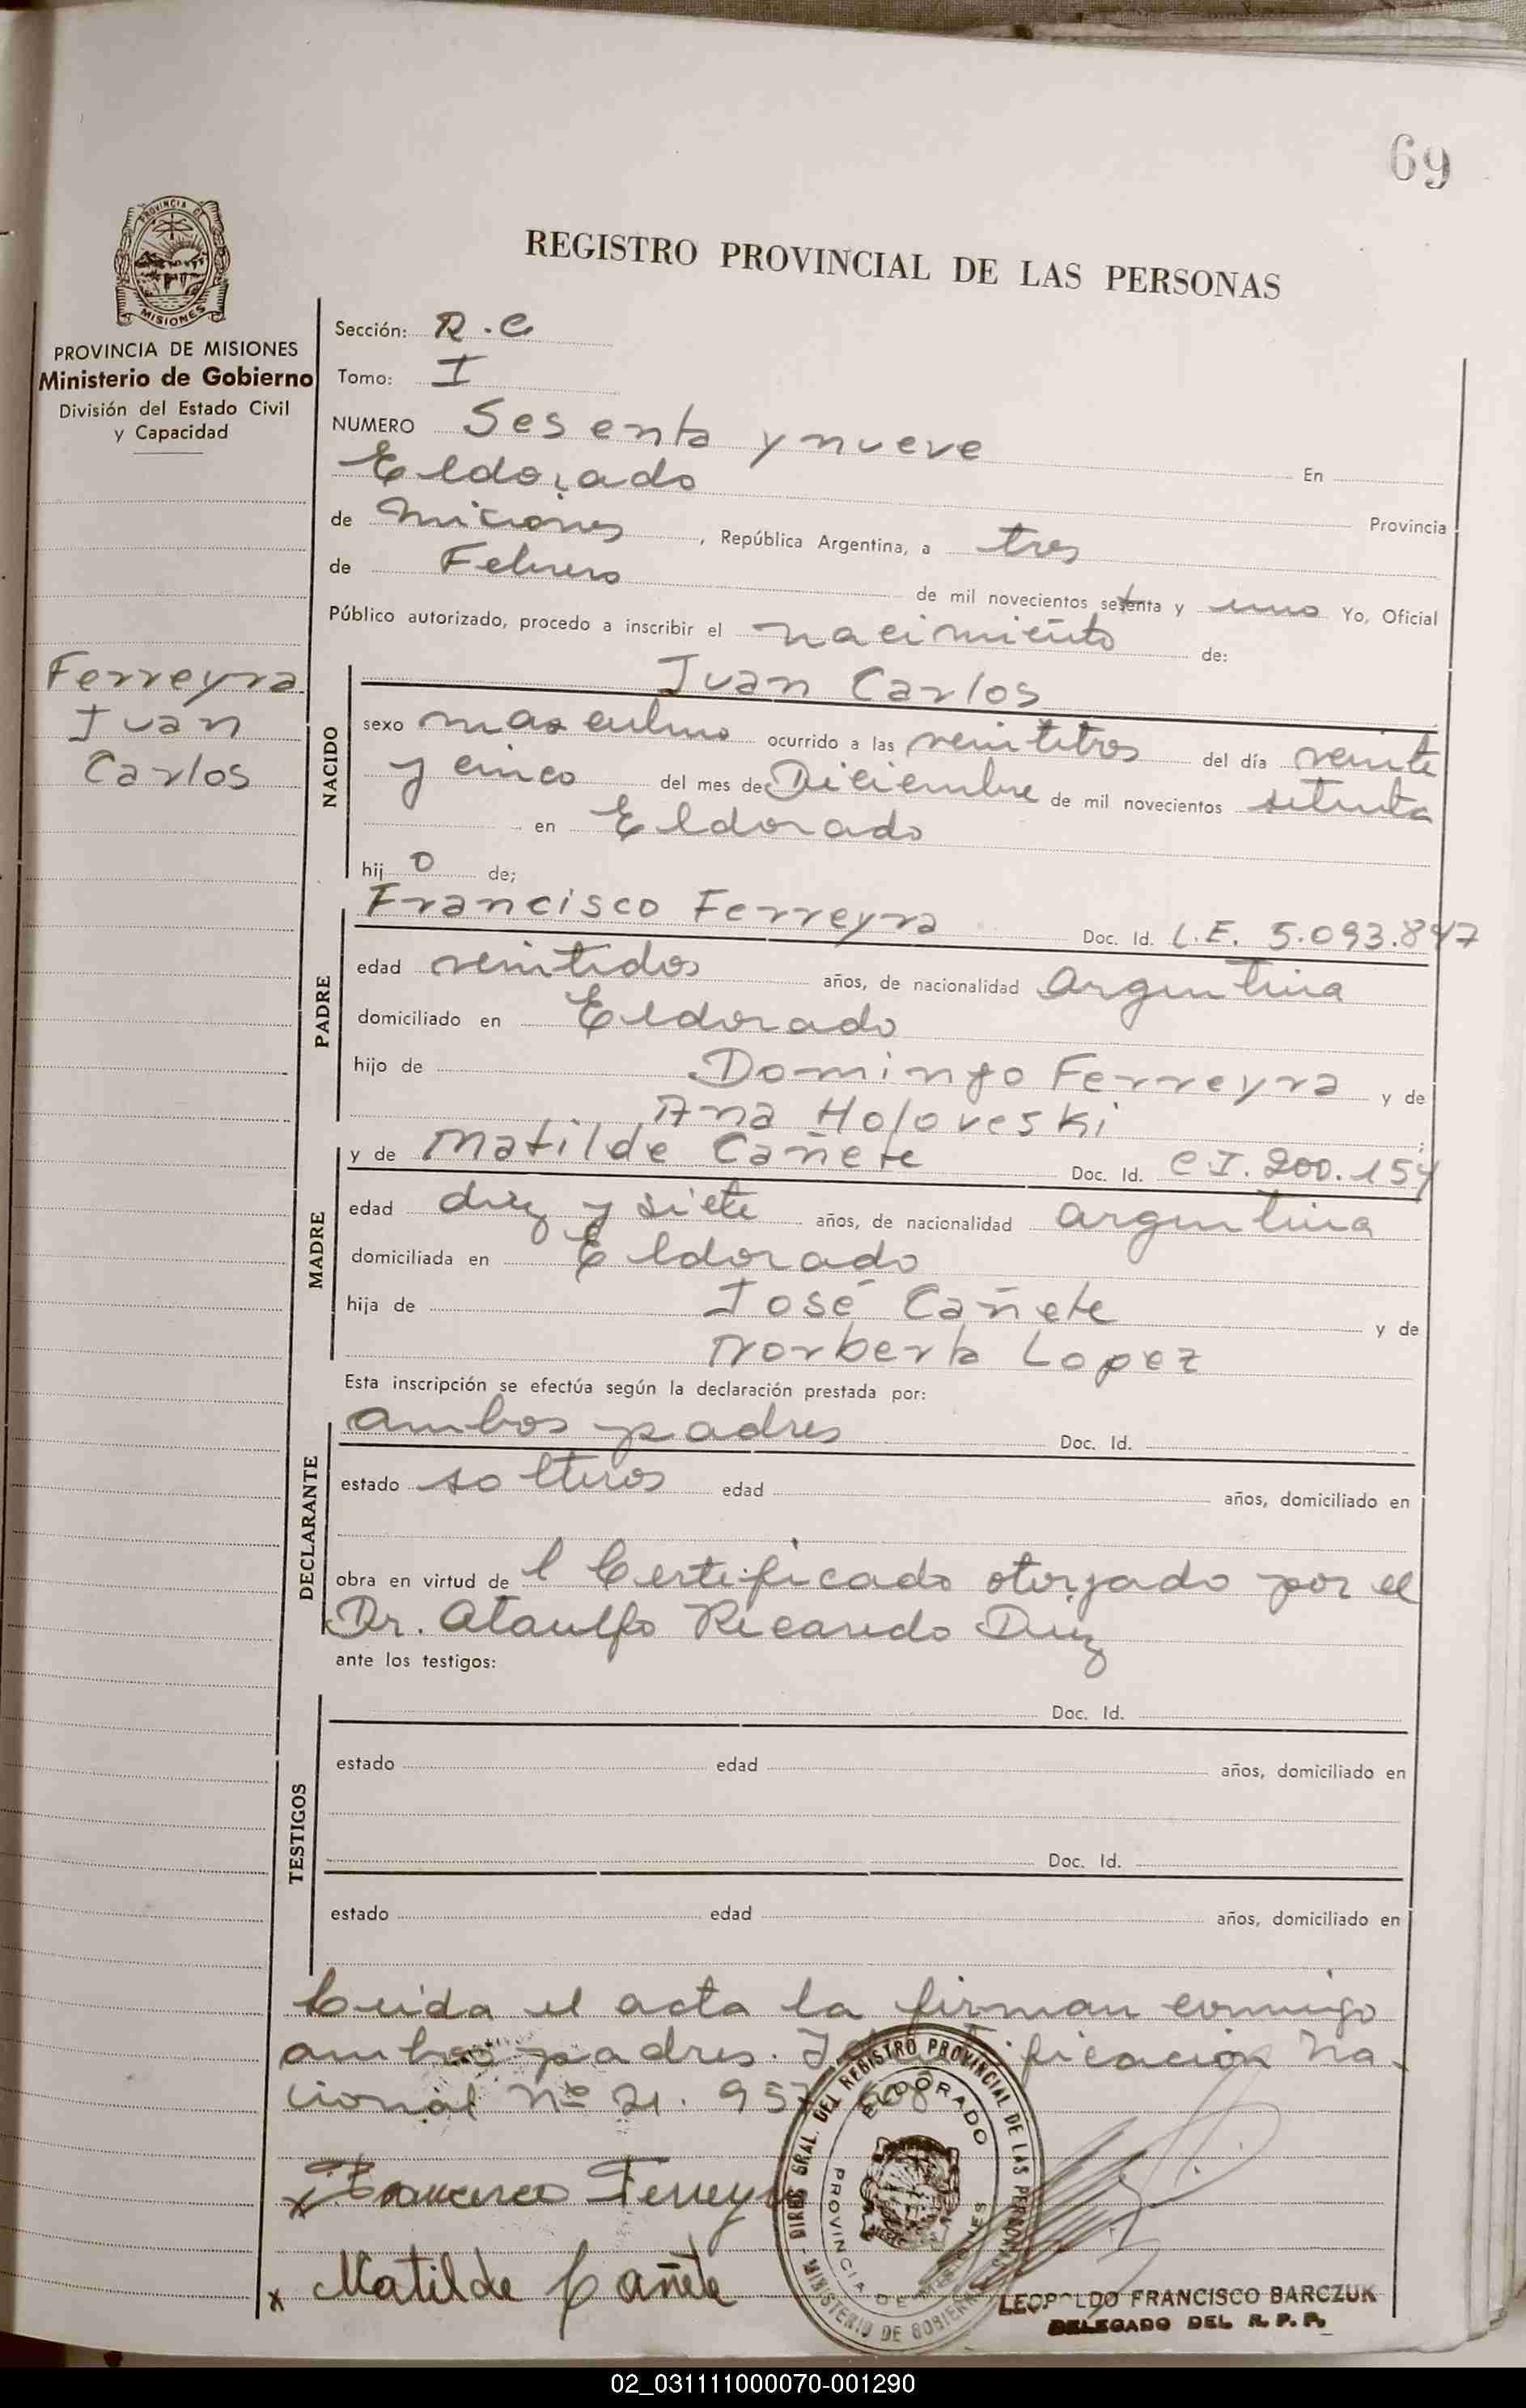 69
PROVINCIA DE
MISIONES
PROVINCIA DE MISIONES
Ministerio de Gobierno
División del Estado Civil
y Capacidad
Ferreyra
Juan
Carlos
REGISTRO PROVINCIAL DE LAS PERSONAS
Sección: R.C
Tomo: I
NUMERO Sesenta y nueve En
Eldorado Provincia
de Miciones, República Argentina, a tres
de Febrero de mil novecientos setenta y uno Yo, Oficial
Público autorizado, procedo a inscribir el nacimiento de:
Juan Carlos
NACIDO
sexo masculino ocurrido a las veintitres del día veinte
y cinco del mes de Diciembre de mil novecientos setenta
en Eldorado
hijo de;
PADRE
Francisco Ferreyra Doc. Id. L.E. 5.093.847
edad veintidos años, de nacionalidad argentina
domiciliado en Eldorado
hijo de Domingo Ferreyra y de
Ana Holoveski;
MADRE
y de Matilde Cañete Doc. Id. C I. 200.154
edad diez y siete años, de nacionalidad argentina
domiciliada en Eldorado
hija de José Cañete y de
Norberta Lopez
Esta inscripción se efectúa según la declaración prestada por:
DECLARANTE
ambos padres Doc. Id.
estado solteros edad años, domiciliado en
obra en virtud del Certificado otorgado por el
Dr. Ataulfo Ricardo Diez
ante los testigos:
TESTIGOS
Doc. Id.
estado edad años, domiciliado en
Doc. Id.
estado edad años, domiciliado en
Leida el acta la firman conmigo
ambos padres. Identificación Na-
cional Nº 21.957
Francisco Ferreyra
x Matilde Cañete
DIREC. GRAL. DEL REGISTRO PROVINCIAL DE LAS PERSONAS
ELDORADO
PROVINCIA DE MISIONES
MINISTERIO DE GOBIERNO
LEOPOLDO FRANCISCO BARCZUK
DELEGADO DEL R. P. P.
02_031111000070-001290